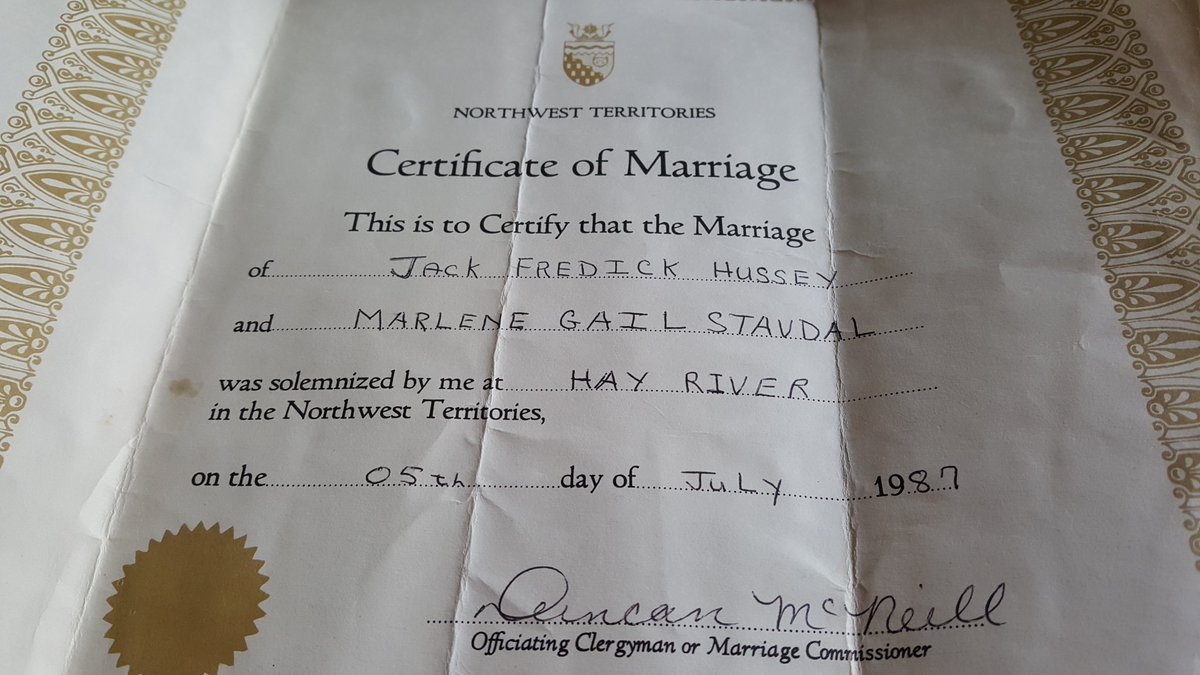 NORTHWEST TERRITORIES
Certificate of Marriage
This is to Certify that the Marriage
of JACK FREDICK HUSSEY
and MARLENE GAIL STAVDAL
was solemnized by me at HAY RIVER
in the Northwest Territories,
on the 05th day of JULY 1987
Duncan McNeill
Officiating Clergyman or Marriage Commissioner